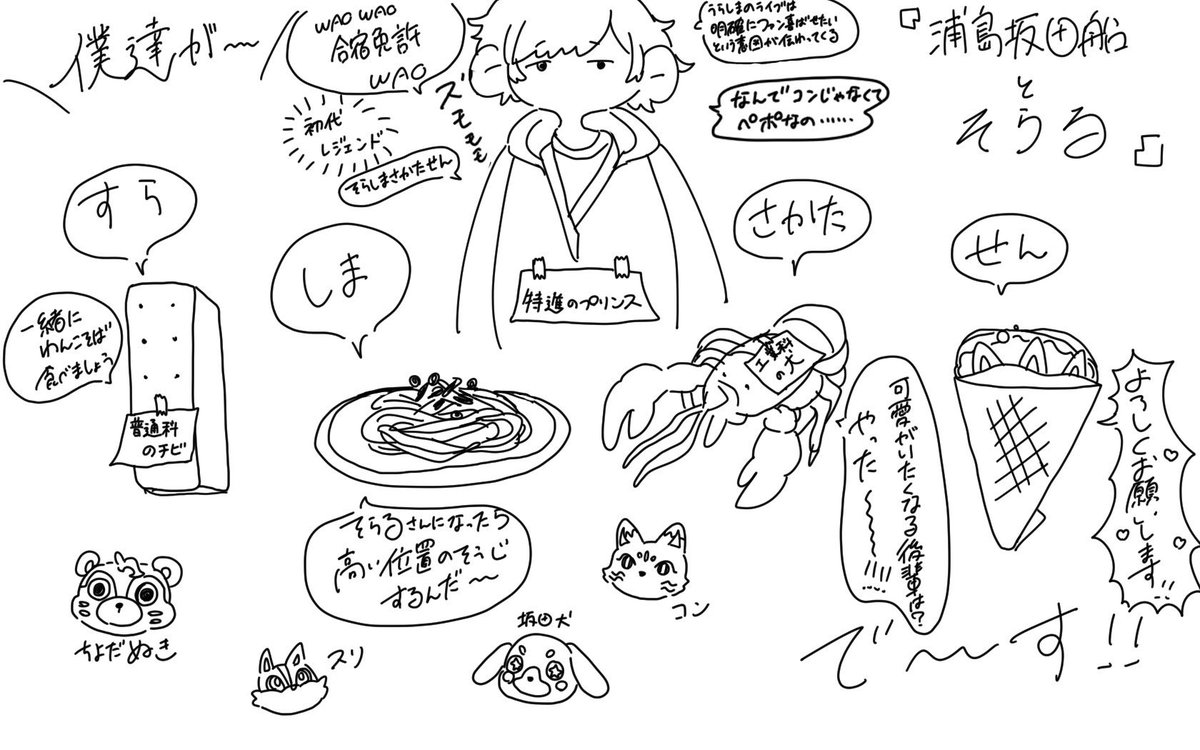 僕達が〜
WAO WAO
合宿免許
WAO
初代
レジェンド
そらしまさかたせん
ズモモモ
うらしまのライブは
明確にファン喜ばせたい
という意図が伝わってくる
なんでコンじゃなくて
ペポなの……
『浦島坂田船
と
そらる』
すら
しま
さかた
せん
特進のプリンス
一緒に
わんこそば
食べましょう
普通科
のチビ
工業科
の犬
可愛がいたくなる後輩は?
やった〜〜〜!!!!
よろしくお願いします!!
そらるさんになったら
高い位置のそうじ
するんだ〜
ちよだぬき
スリ
坂田犬
コン
で〜〜す!!